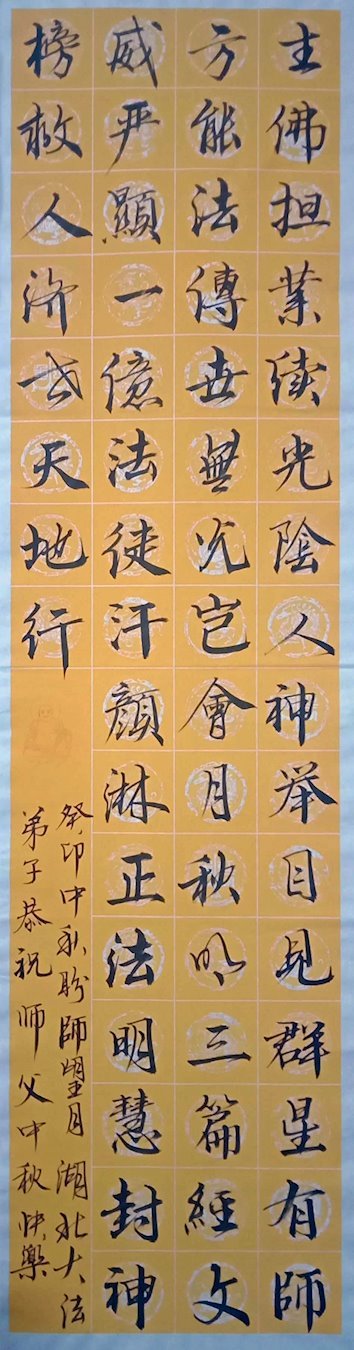 主佛担業續光陰人神举目見群星有師
方能法傳世無光岂會月秋明三篇經文
威严顯一億法徒汗顔淋正法明慧封神
榜救人济世天地行
癸卯中秋盼師望月 湖北大法
弟子恭祝师父中秋快樂